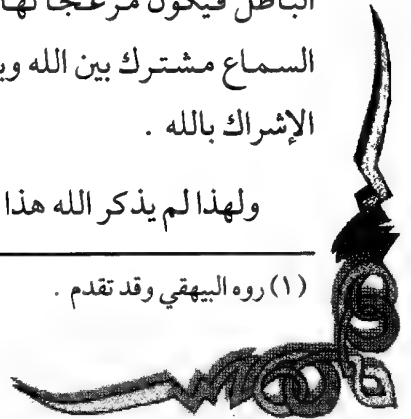 الباطل فيكون مزعجا لها
السماع مشترك بين الله وي
الإشراك بالله .
ولهذا لم يذكر الله هذا
(١) روه البيهقي وقد تقدم .